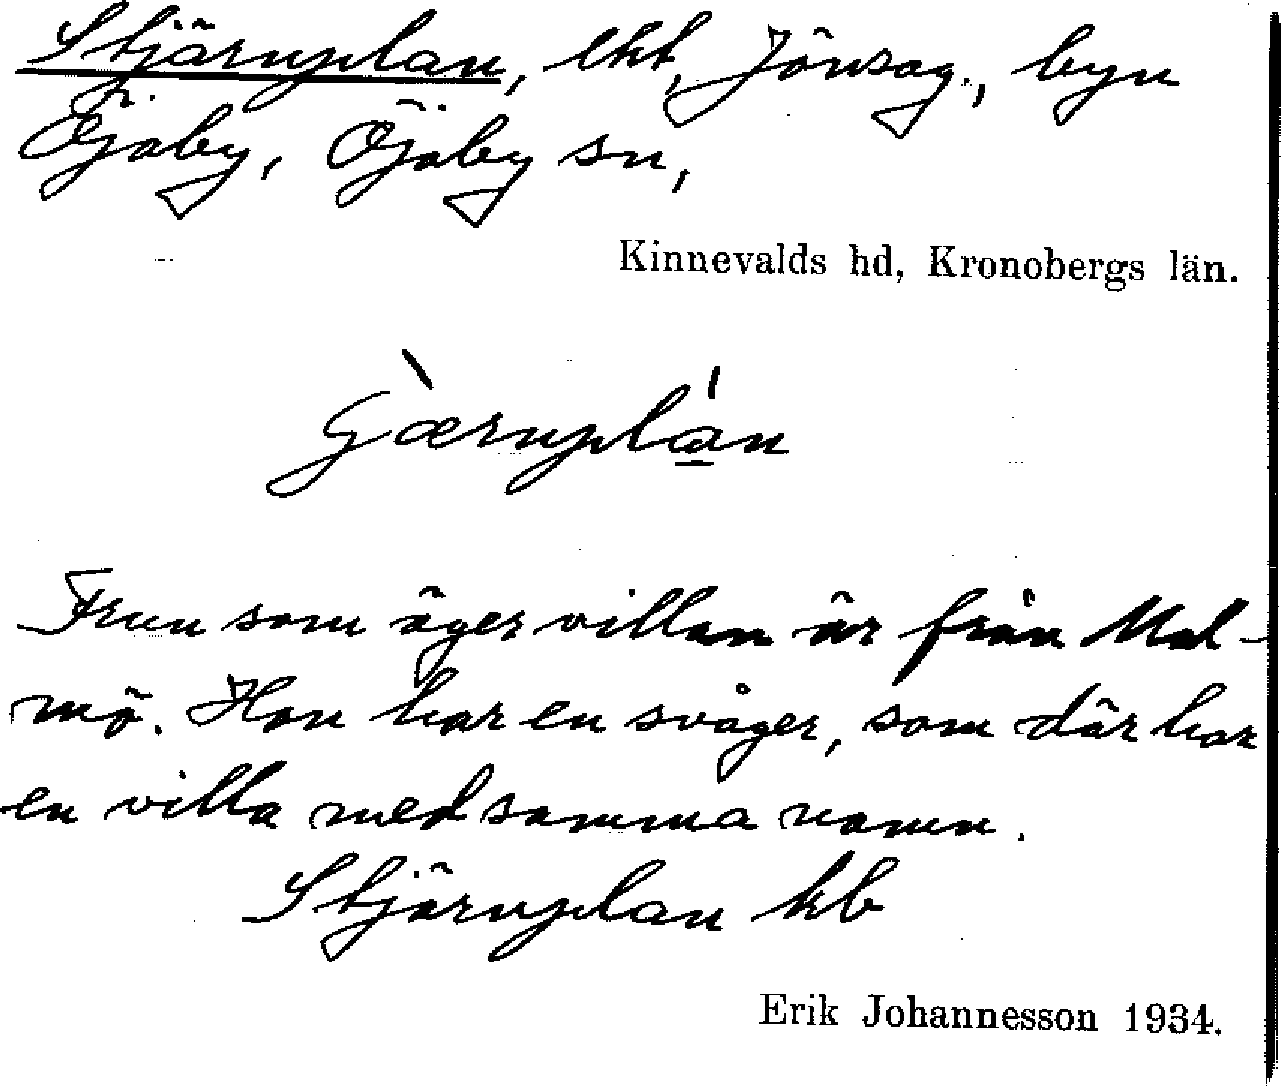 Stjärnplan, lht, Jönsag., byn
Öjaby, Öjaby sn,
Kinnevalds hd, Kronobergs län.
Frun som äger villan är från Mal-
mö. Hon har en svåger, som där har
en villa med samma namn.
Stjärnplan kb
Erik Johannesson 1934.